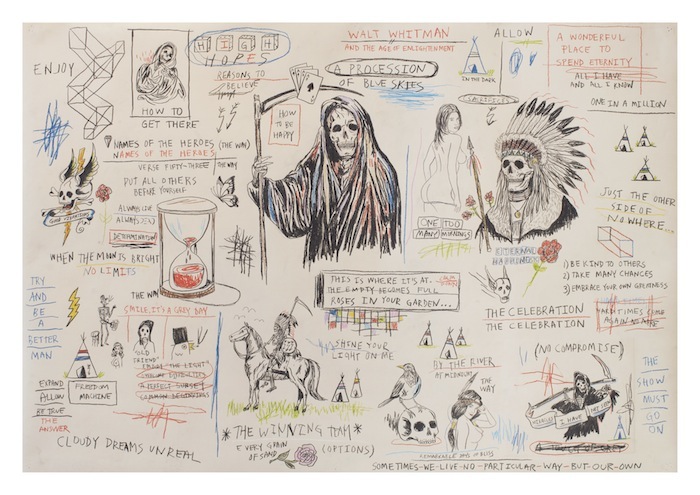 ENJOY
HOW TO
GET THERE
HIGH
HOPES
REASONS TO
BELIEVE
WALT WHITMAN
AND THE AGE OF ENLIGHTENMENT
A PROCESSION
OF BLUE SKIES
IN THE DARK
ALLOW
A WONDERFUL
PLACE TO
SPEND ETERNITY
ALL I HAVE
AND ALL I KNOW
ONE IN A MILLION
NAMES OF THE HEROES (THE WAY)
NAMES OF THE HEROES
VERSE FIFTY-THREE THE WAY
PUT ALL OTHERS
BEFORE YOURSELF
ALWAYS
ALWAYS
DETERMINATION
GOOD VIBRATIONS
WHEN THE MOON IS BRIGHT
NO LIMITS
THE WAY
HOW
TO BE
HAPPY
ONE TOO
MANY MORNINGS
ETERNAL
HAPPINESS
JUST THE OTHER
SIDE OF
NOWHERE...
1) BE KIND TO OTHERS
2) TAKE MANY CHANCES
3) EMBRACE YOUR OWN GREATNESS
THE CELEBRATION
THE CELEBRATION
HARD TIMES COME
AGAIN NO MORE
THIS IS WHERE IT'S AT.
THE EMPTY BECOMES FULL
ROSES IN YOUR GARDEN...
TRY
AND
BE
A
BETTER
MAN
SMILE, IT'S A GREY DAY
"OLD
FRIEND"
ABOUT THE LIGHT
A PERFECT SUNSET
COMMON BEGINNINGS
EXPAND
ALLOW
BE TRUE
THE
ANSWER
FREEDOM
MACHINE
CLOUDY DREAMS UNREAL
SHINE YOUR
LIGHT ON ME
*THE WINNING TEAM*
EVERY GRAIN
OF SAND
(OPTIONS)
BY THE RIVER
AT MIDNIGHT
THE
WAY
REMARKABLE DAYS OF BLISS
(NO COMPROMISE)
I HAVE
THE
SHOW
MUST
GO
ON
A TOUCH OF GREY
SOMETIMES-WE-LIVE-NO-PARTICULAR-WAY-BUT-OUR-OWN